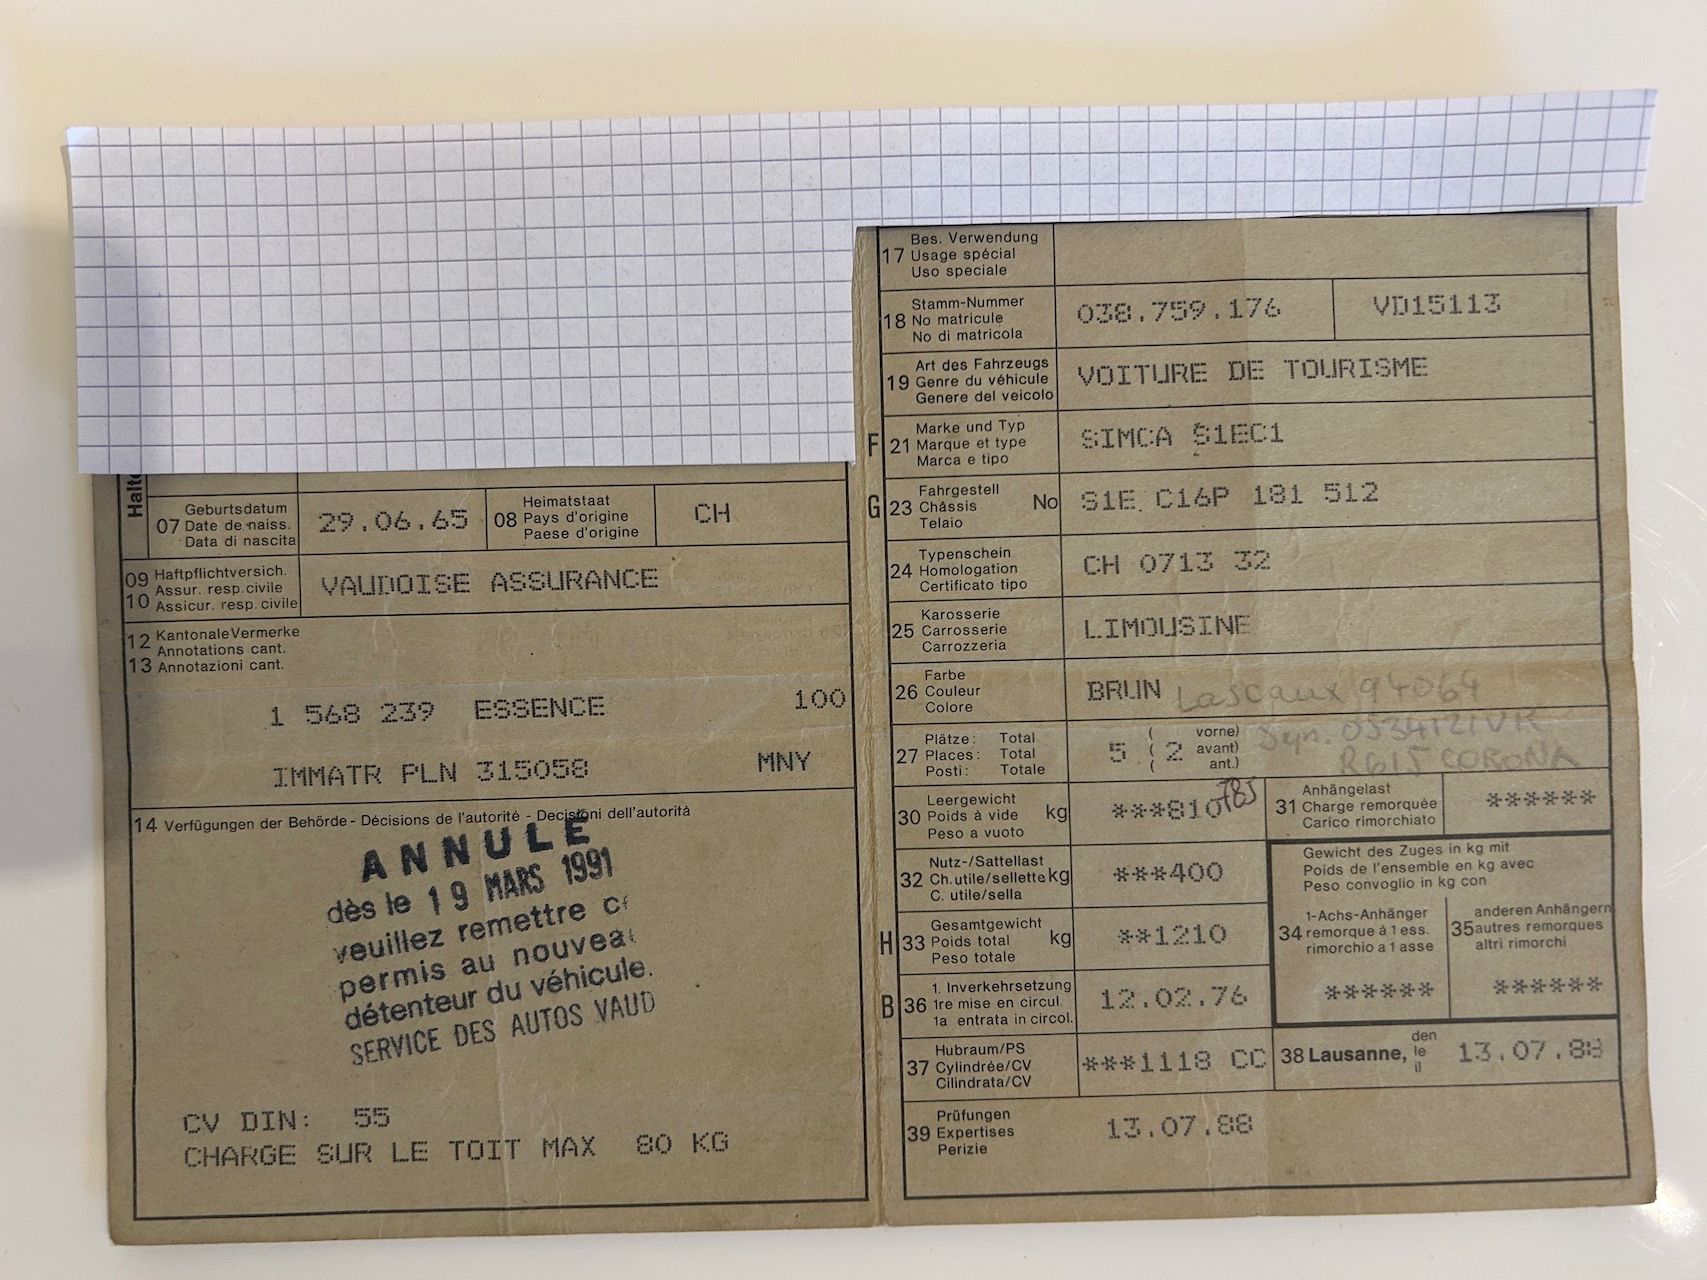 Geburtsdatum
07 Date de naiss.
Data di nascita
29.06.65
Heimatstaat
08 Pays d'origine
Paese d'origine
CH
09 Haftpflichtversich.
Assur. resp. civile
10 Assicur. resp. civile
VAUDOISE ASSURANCE
12 Kantonale Vermerke
Annotations cant.
13 Annotazioni cant.
1 568 239 ESSENCE 100
IMMATR PLN 315058 MNY
14 Verfügungen der Behörde - Décisions de l'autorité - Decisioni dell'autorità
ANNULE
dès le 19 MARS 1991
veuillez remettre
permis au
détenteur du véhicule.
SERVICE DES AUTOS VAUD
CV DIN: 55
CHARGE SUR LE TOIT MAX 80 KG
Bes. Verwendung
17 Usage spécial
Uso speciale
Stamm-Nummer
18 No matricule
No di matricola
038.759.176 VD15113
Art des Fahrzeugs
19 Genre du véhicule
Genere del veicolo
VOITURE DE TOURISME
Marke und Typ
F 21 Marque et type
Marca e tipo
SIMCA S1EC1
Fahrgestell No
G 23 Châssis
Telaio
S1E C16P 181 512
Typenschein
24 Homologation
Certificato tipo
CH 0713 32
Karosserie
25 Carrosserie
Carrozzeria
LIMOUSINE
Farbe
26 Couleur
Colore
BRUN Lascaux 94064
Plätze: Total
27 Places: Total
Posti: Totale
5 ( 2
vorne)
avant)
ant.)
R615 CORONA
Leergewicht
30 Poids à vide kg
Peso a vuoto
***810 785
Anhängelast
31 Charge remorquée
Carico rimorchiato
******
Nutz-/Sattellast
32 Ch. utile/sellette kg
C. utile/sella
***400
Gewicht des Zuges in kg mit
Poids de l'ensemble en kg avec
Peso convoglio in kg con
Gesamtgewicht
H 33 Poids total kg
Peso totale
**1210
1-Achs-Anhänger
34 remorque à 1 ess.
rimorchio a 1 asse
******
anderen Anhängern
35 autres remorques
altri rimorchi
******
1. Inverkehrsetzung
B 36 1re mise en circul.
1a entrata in circol.
12.02.76
Hubraum/PS
37 Cylindrée/CV
Cilindrata/CV
***1118 CC
38 Lausanne,
den
le
il
13.07.88
Prüfungen
39 Expertises
Perizie
13.07.88